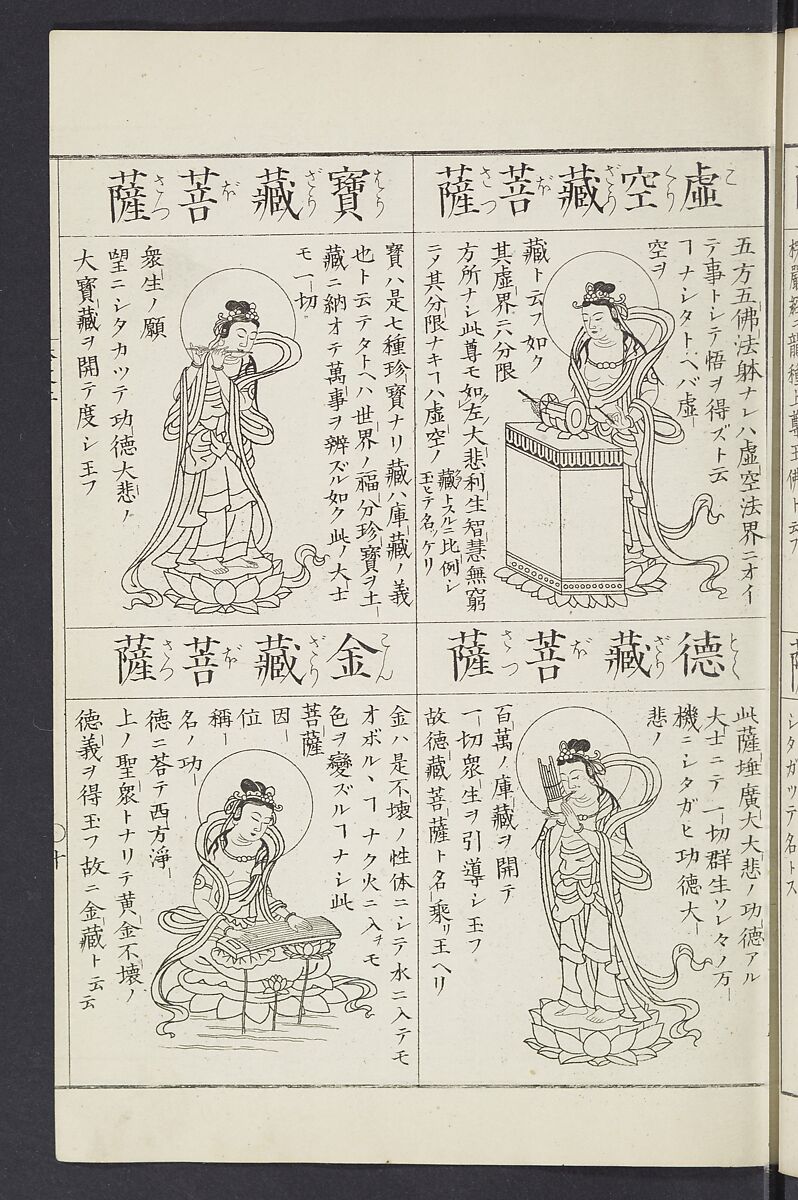 虛空藏菩薩
こくうざうぼさつ
五方五佛法躰ナレハ虛空法界ニオイ
テ事トシテ悟ヲ得ズト云
ヿナシタトヘバ虛
空ヲ
藏ト云フ如ク
其虛界ニ分限
方所ナシ此尊モ如左大悲利生智慧無窮
ニメ其分限ナキヿハ虛空ノ
藏トスルニ比例シ
玉ヒテ名ツケリ
寶藏菩薩
はうざうぼさつ
寶ハ是七種珍寶ナリ藏ハ庫藏ノ義
也ト云テタトヘハ世界ノ福分珍寶ヲ土
藏ニ納オテ萬事ヲ辨ズル如ク此ノ大士
モ一切
衆生ノ願
望ニシタカツテ功德大悲ノ
大寶藏ヲ開テ度シ玉フ
德藏菩薩
とくざうぼさつ
此薩埵廣大大悲ノ功德アル
大士ニテ一切群生ソレ々ノ万
機ニシタガヒ功德大
悲ノ
百萬ノ庫藏ヲ開テ
一切衆生ヲ引導シ玉フ
故德藏菩薩ト名乘リ玉ヘリ
金藏菩薩
こんざうぼさつ
金ハ是不壞ノ性体ニシテ水ニ入テモ
オボルヽヿナク火ニ入テモ
色ヲ變ズルヿナシ此
菩薩
因
位
稱
名ノ功
德ニ荅テ西方淨
上ノ聖衆トナリテ黄金不壞ノ
德義ヲ得玉フ故ニ金藏ト云云
〇十
シタガツテ名トス